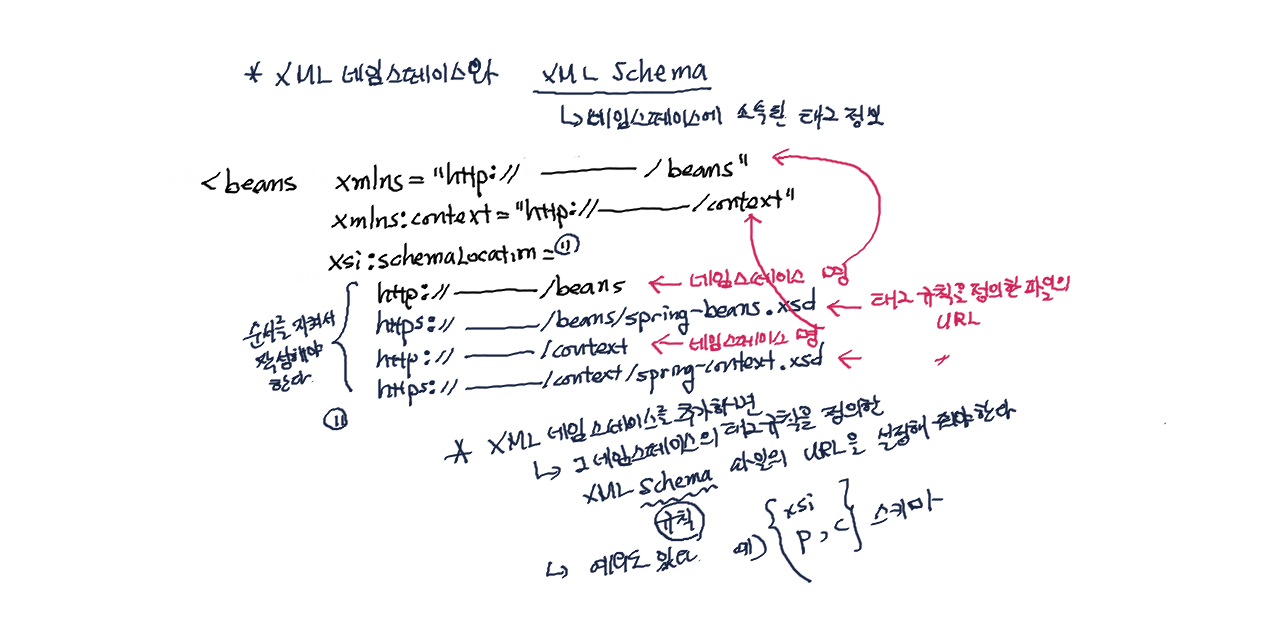 * XML 네임스페이스와 XML Schema
↳ 네임스페이스에 소속된 태그 정보
<beans xmlns="http:// ——— /beans"
xmlns:context="http://———/context"
xsi:schemaLocation="
http://———/beans ← 네임스페이스 명
https://———/beans/spring-beans.xsd ← 태그 규칙을 정의한 파일의 URL
http://———/context ← 네임스페이스 명
https://———/context/spring-context.xsd ← 〃
순서를 지켜서
작성해야
한다
"
* XML 네임스페이스를 추가하면
↳ 그 네임스페이스의 태그규칙을 정의한
XML Schema 파일의 URL을 설정해 줘야 한다
규칙
↳ 예외도 있다 예) { xsi
p, c } 스키마